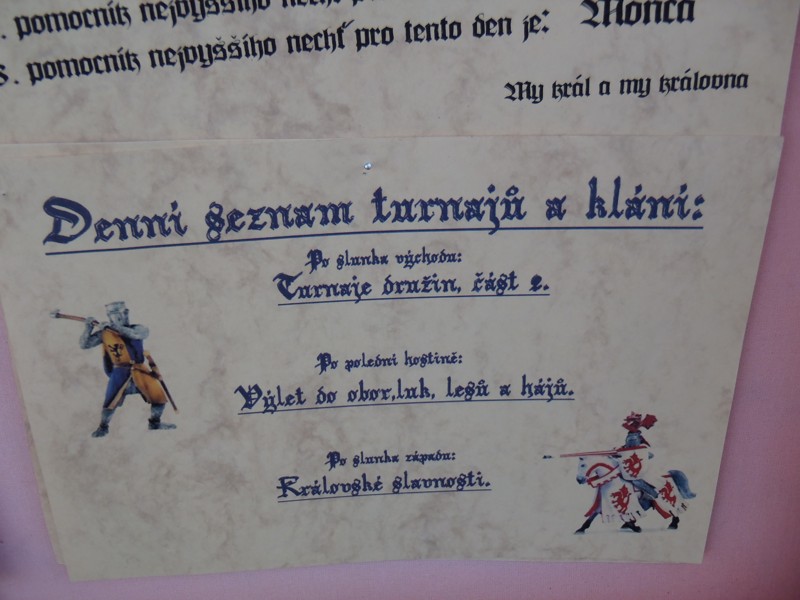 . pomocník nejvyššího nechť p
8. pomocník nejvyššího nechť pro tento den je: Monča
My král a my královna
Denní seznam turnajů a klání:
Po slunka východu:
Turnaje družin, část 2.
Po polední hostině:
Výlet do obor,luk, lesů a hájů.
Po slunka západu:
Královské slavnosti.